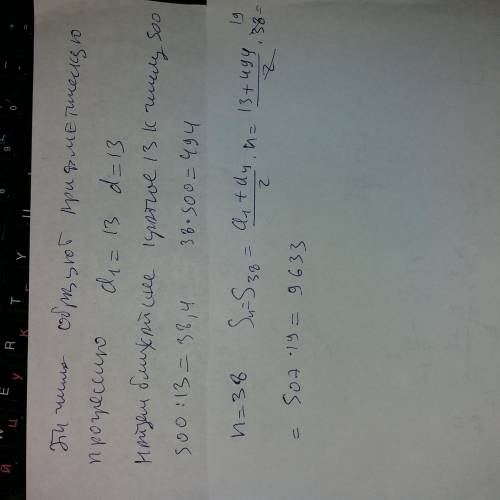 Эти числа образуют арифметическую
прогрессию a1 = 13 d = 13
Найдем ближайшее кратное 13 к числу 500
500 : 13 = 38,4 38 · 500 = 494
n = 38 Sn = S38 = a1 + an / 2 · n = 13 + 494 / 2 · 38 19 =
= 507 · 19 = 9633